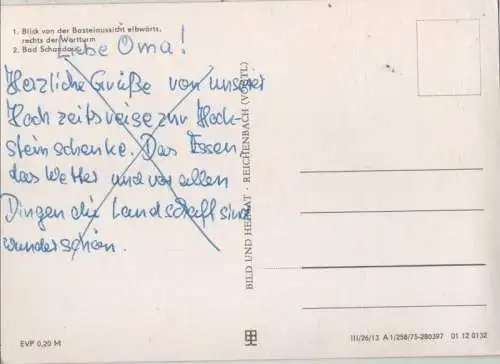 1. Blick von der Basteiaussicht elbwärts,
rechts der Wartturm
2. Bad Schandau
Liebe Oma!
Herzliche Grüße von unserer
Hochzeitsreise zur Hock-
steinschenke. Das Essen,
das Wetter und vor allen
Dingen die Landschaft sind
wunderschön.
EVP 0,20 M
BILD UND HEIMAT · REICHENBACH (VOGTL)
III/26/13 A 1/258/75-280397 01 12 0132